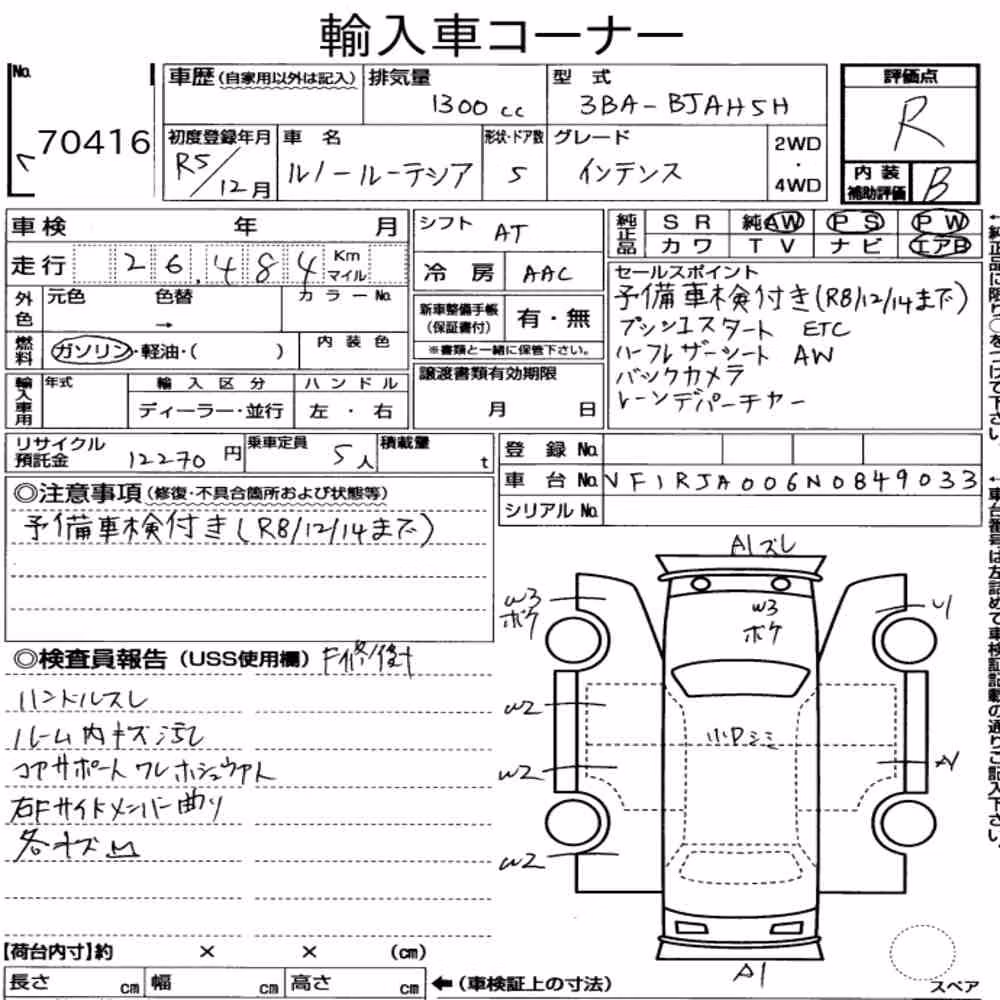 輸入車コーナー
No. 70416
車歴(自家用以外は記入) 排気量 1300cc 型式 3BA-BJAH5H 評価点 R
初度登録年月 R5/12月 車名 ルノールーテシア 形状・ドア数 5 グレード インテンス 2WD・4WD 内装補助評価 B
車検 年 月 シフト AT 純正品 SR 純AW PS PW
カワ TV ナビ エアB
走行 26,484 Km マイル 冷房 AAC
外色 元色 色替 → カラーNo.
新車整備手帳(保証書付) 有・無
※書類と一緒に保管下さい。
燃料 ガソリン・軽油・( ) 内装色
輸入車用 年式 輸入区分 ハンドル
ディーラー・並行 左・右
譲渡書類有効期限
月 日
セールスポイント
予備車検付き(R8/12/14まで)
プッシュスタート ETC
ハーフレザーシート AW
バックカメラ
レーンデパーチャー
リサイクル預託金 12270円 乗車定員 5人 積載量 t
登録No.
車台No. VF1RJA006N0849033
シリアルNo.
◎注意事項(修復・不具合箇所および状態等)
予備車検付き(R8/12/14まで)
◎検査員報告(USS使用欄) F修/付
ハンドルスレ
ルーム内キズ汚レ
コアサポート ワレ ホシュウアト
右Fサイドメンバー曲り
各キズ凹
A1ズレ
W3
ボケ
W3
ボケ
U
W2
小凹シミ
W2
W2
A1
【荷台内寸】約 × × (cm)
長さ cm 幅 cm 高さ cm ←(車検証上の寸法)
スペア
←純正品に限り○をつけて下さい。
←車台番号は左詰めで車検証記載の通りご記入下さい。